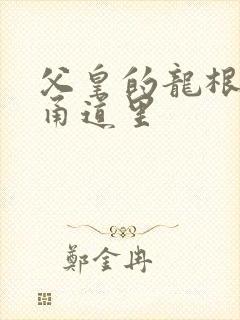 父皇的龍根
甬道里
鄭金冉